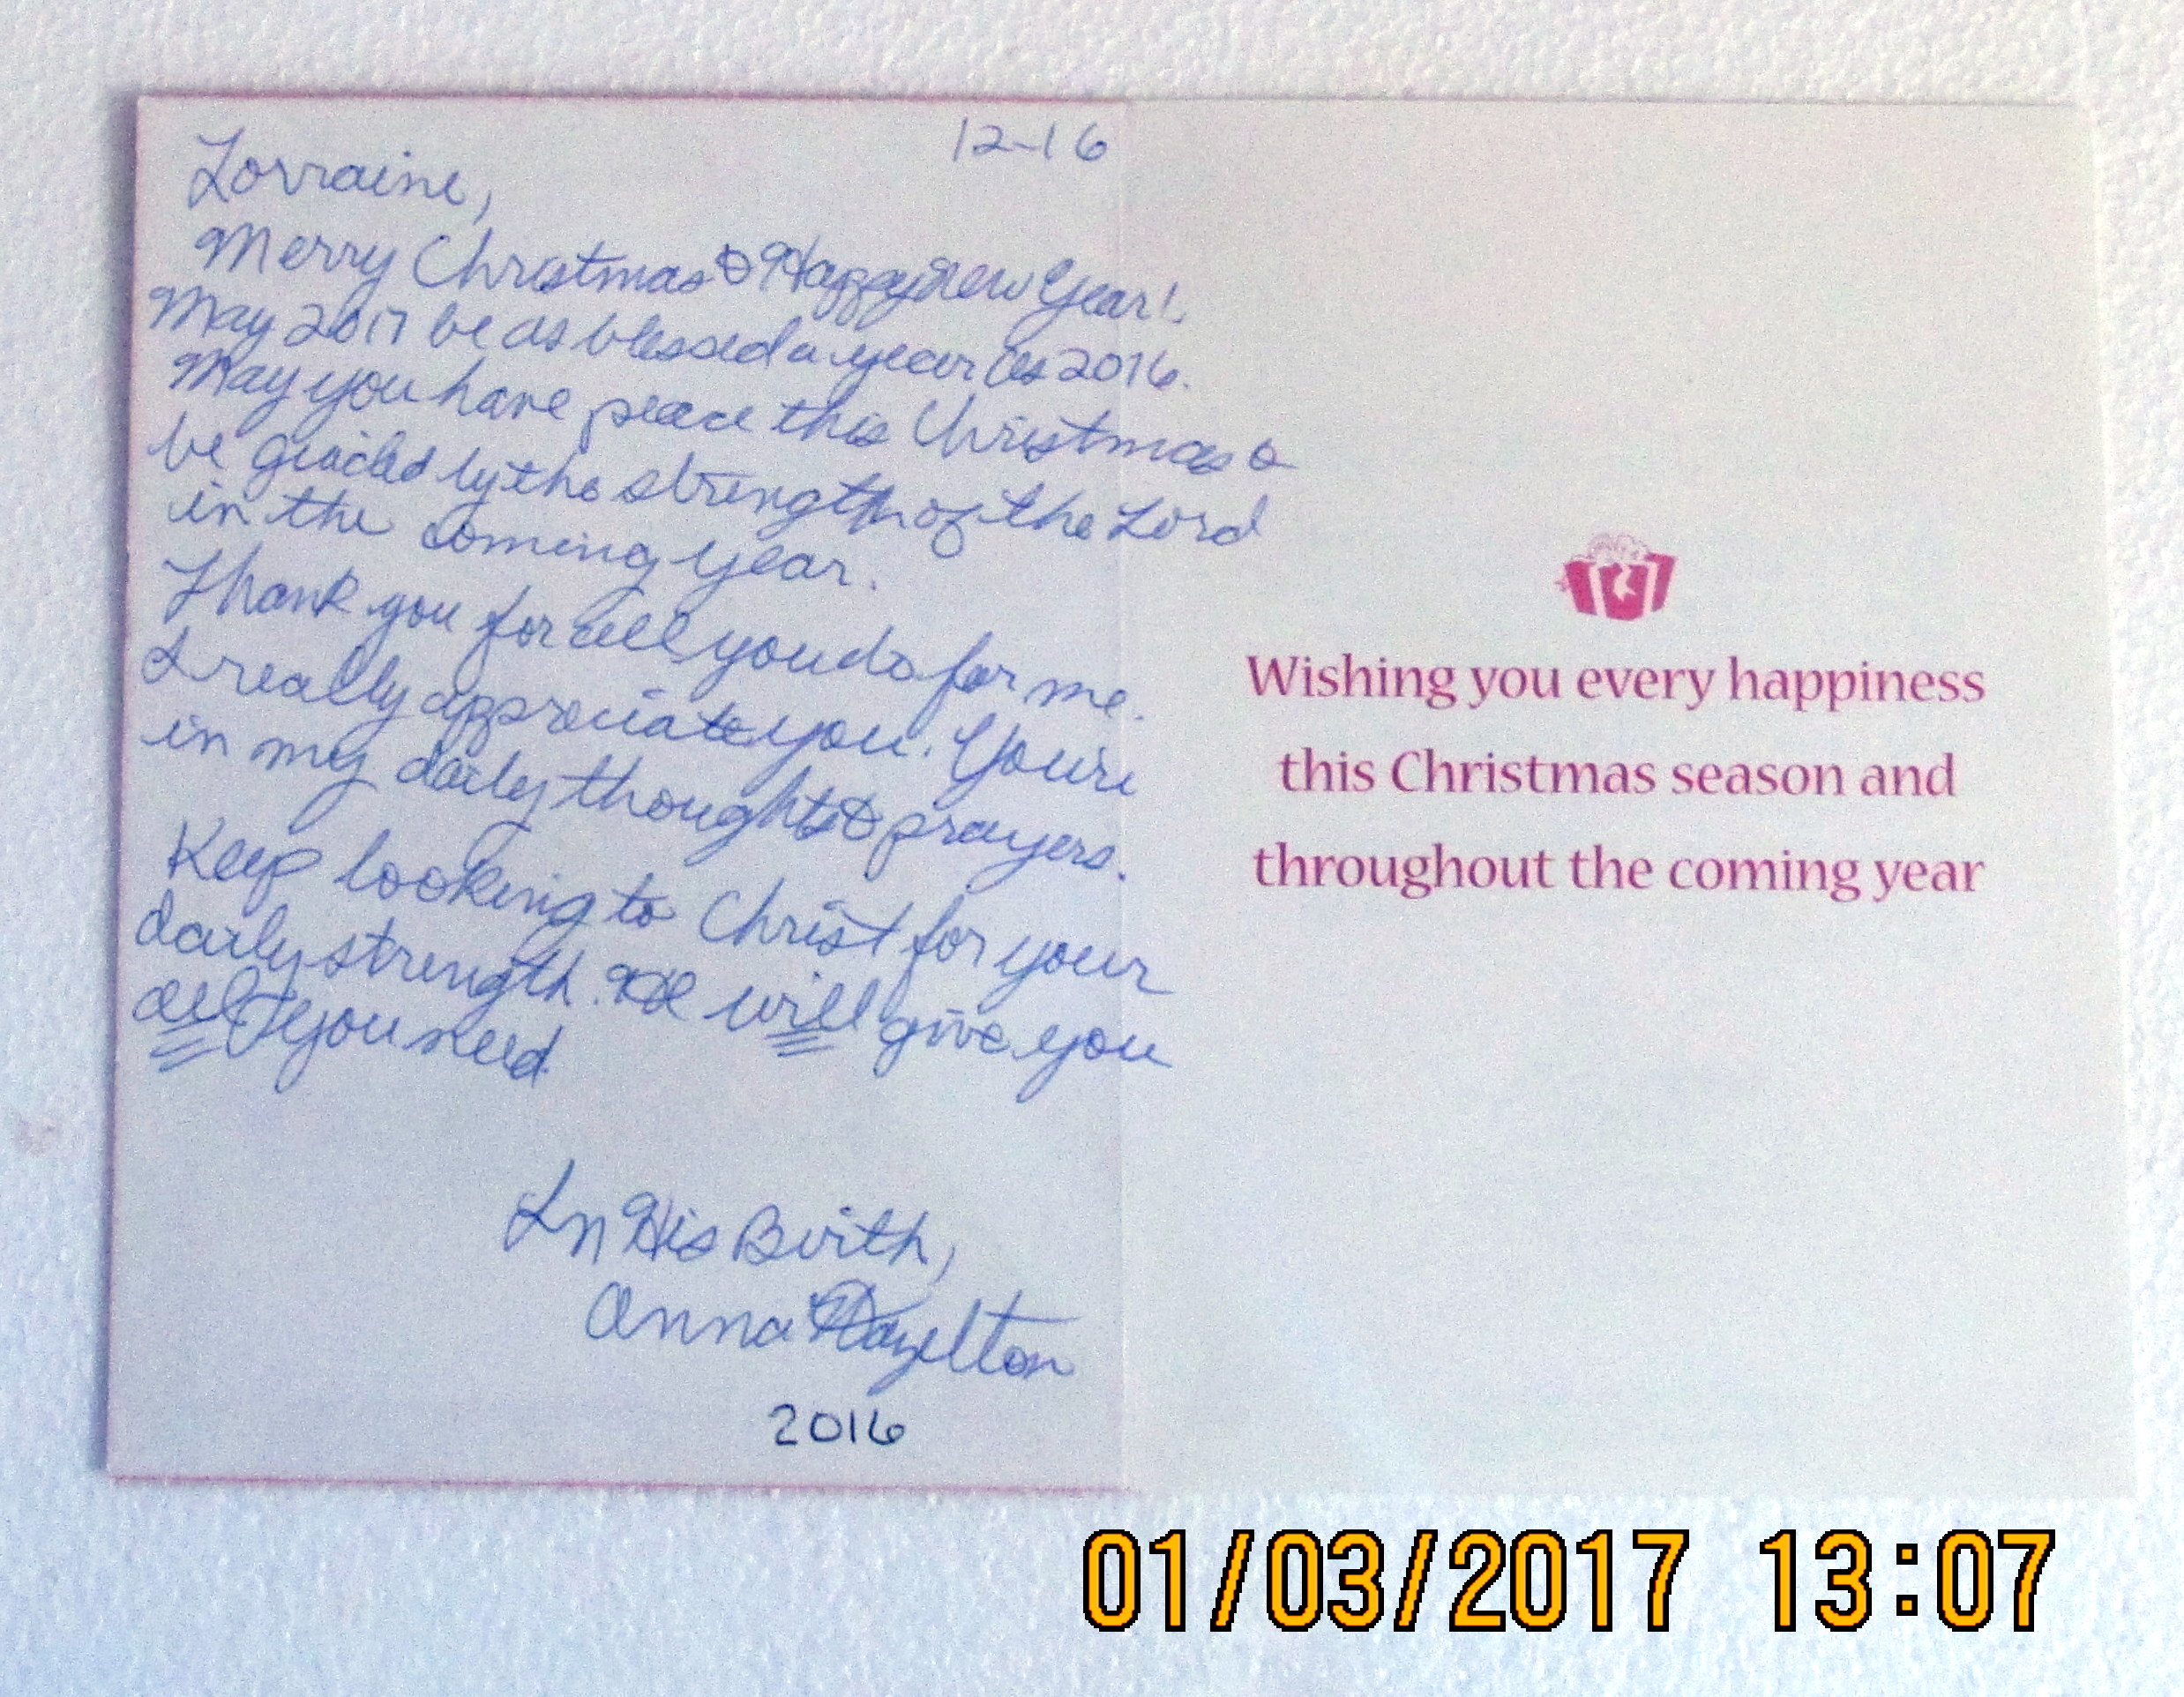 12-16
Lorraine,
Merry Christmas & Happy New Year!
May 2017 be as blessed a year as 2016.
May you have peace this Christmas &
be guided by the strength of the Lord
in the coming year.
Thank you for all you do for me.
I really appreciate you. You're
in my daily thoughts & prayers.
Keep looking to Christ for your
daily strength. He will give you
all you need.
In His Birth,
Anna Hazelton
2016
Wishing you every happiness
this Christmas season and
throughout the coming year
01/03/2017 13:07